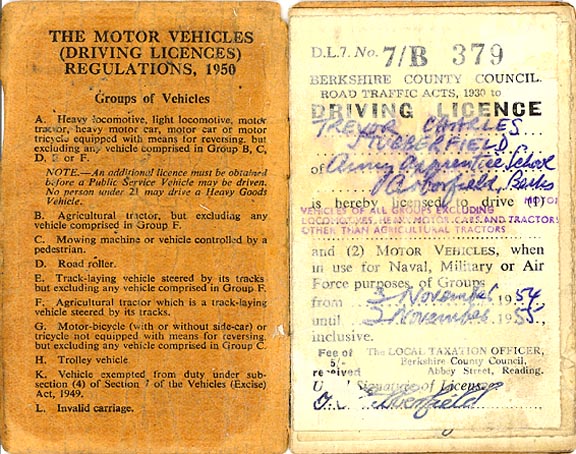 THE MOTOR VEHICLES
(DRIVING LICENCES)
REGULATIONS, 1950
Groups of Vehicles
A. Heavy locomotive, light locomotive, motor
tractor, heavy motor car, motor car or motor
tricycle equipped with means for reversing, but
excluding any vehicle comprised in Group B, C,
D, E or F.
NOTE.—An additional licence must be obtained
before a Public Service Vehicle may be driven.
No person under 21 may drive a Heavy Goods
Vehicle.
B. Agricultural tractor, but excluding any
vehicle comprised in Group F.
C. Mowing machine or vehicle controlled by a
pedestrian.
D. Road roller.
E. Track-laying vehicle steered by its tracks
but excluding any vehicle comprised in Group F.
F. Agricultural tractor which is a track-laying
vehicle steered by its tracks.
G. Motor-bicycle (with or without side-car) or
tricycle not equipped with means for reversing,
but excluding any vehicle comprised in Group C.
H. Trolley vehicle
K. Vehicle exempted from duty under sub-
section (4) of Section 7 of the Vehicles (Excise)
Act, 1949.
L. Invalid carriage.
D.L.7. No. 7/B 379
BERKSHIRE COUNTY COUNCIL.
ROAD TRAFFIC ACTS, 1930 to
DRIVING LICENCE
TREVOR CHARLES
STUBBERFIELD
of Army Apprentice School
Arborfield, Berks
is hereby licensed to drive (1)
MOTOR
VEHICLES OF ALL GROUPS EXCLUDING
LOCOMOTIVES, HEAVY MOTOR CARS AND TRACTORS
OTHER THAN AGRICULTURAL TRACTORS
and (2) MOTOR VEHICLES, when
in use for Naval, Military or Air
Force purposes, of Groups
from 3 November 1954
until 2 November 1955,
inclusive.
Fee of
5/-
received
The LOCAL TAXATION OFFICER,
Berkshire County Council,
Abbey Street, Reading.
Signature of Licensee